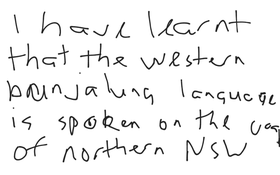 I have learnt
that the western
bunjalung language
is spoken on the
of northern NSW